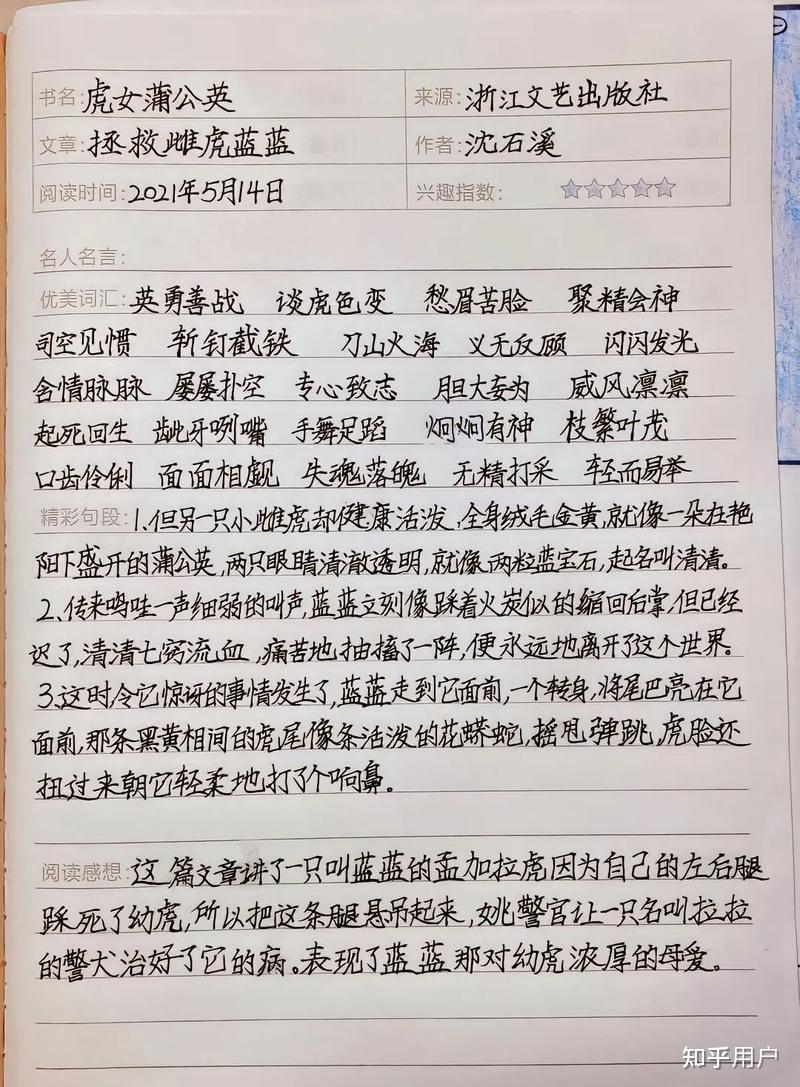 书名:虎女蒲公英 来源:浙江文艺出版社
文章:拯救雌虎蓝蓝 作者:沈石溪
阅读时间:2021年5月14日 兴趣指数: ☆☆☆☆☆
名人名言:
优美词汇:英勇善战 谈虎色变 愁眉苦脸 聚精会神
司空见惯 斩钉截铁 刀山火海 义无反顾 闪闪发光
含情脉脉 屡屡扑空 专心致志 胆大妄为 威风凛凛
起死回生 龇牙咧嘴 手舞足蹈 炯炯有神 枝繁叶茂
口齿伶俐 面面相觑 失魂落魄 无精打采 轻而易举
精彩句段:1、但另一只小雌虎却健康活泼,全身绒毛金黄,就像一朵在艳
阳下盛开的蒲公英,两只眼睛清澈透明,就像两粒蓝宝石,起名叫清清。
2、传来呜哇一声细弱的叫声,蓝蓝立刻像踩着火炭似的缩回后掌,但已经
迟了,清清七窍流血,痛苦地抽搐了一阵,便永远地离开了这个世界。
3、这时令它惊讶的事情发生了,蓝蓝走到它面前,一个转身,将尾巴亮在它
面前,那条黑黄相间的虎尾像条活泼的花蟒蛇,摇甩弹跳,虎脸还
扭过来朝它轻柔地打了个响鼻。
阅读感想:这篇文章讲了一只叫蓝蓝的孟加拉虎因为自己的左后腿
踩死了幼虎,所以把这条腿悬吊起来,姚警官让一只名叫拉拉
的警犬治好了它的病。表现了蓝蓝那对幼虎浓厚的母爱。
知乎用户